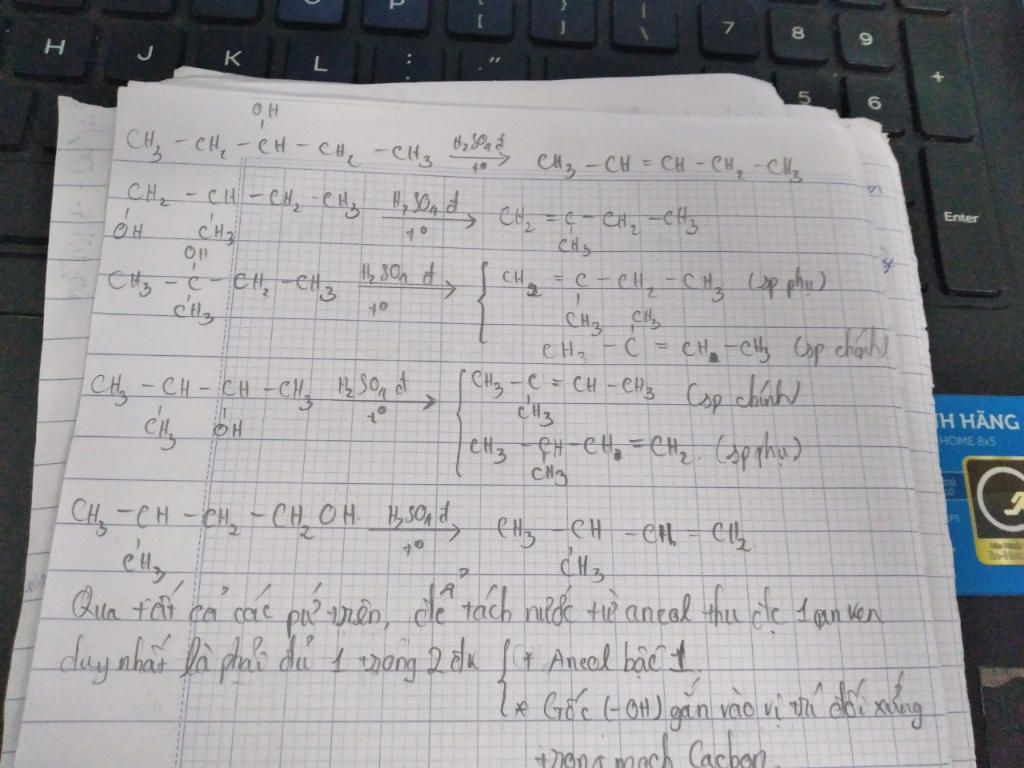 H J K L : ;
7 8 9
5 6
+
Enter
OH
CH3 - CH2 - CH - CH2 - CH3 H2SO4 đ t° → CH3 - CH = CH - CH2 - CH3
CH2 - CH - CH2 - CH3 H2SO4 đ t° → CH2 = C - CH2 - CH3
OH CH3 CH3
OH
CH3 - C - CH2 - CH3 H2SO4 đ t° → { CH2 = C - CH2 - CH3 (sp phụ)
CH3 CH3
CH3
CH3 - C = CH - CH3 (sp chính)
CH3 - CH - CH - CH3 H2SO4 đ t° → { CH3 - C = CH - CH3 (sp chính)
CH3 OH CH3
CH3 - CH - CH = CH2 (sp phụ)
CH3
CH3 - CH - CH2 - CH2OH H2SO4 đ t° → CH3 - CH - CH = CH2
CH3 CH3
Qua tất cả các pứ trên, để tách nước từ ancol thu đc 1 anken
duy nhất là phải đủ 1 trong 2 đk { * Ancol bậc 1.
* Gốc (-OH) gắn vào vị trí đối xứng
trong mạch Cacbon
H HÃNG
HOME 8x5